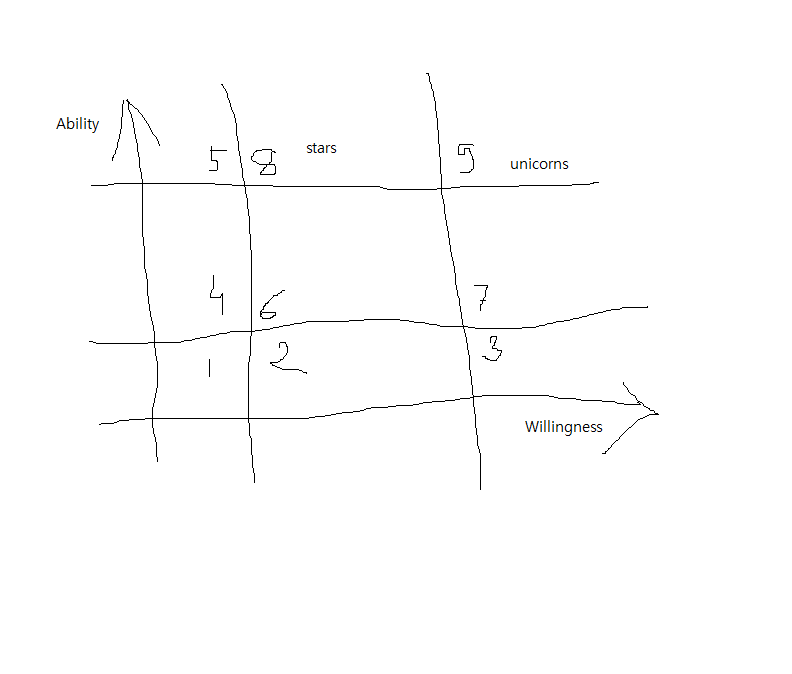 Ability
5 8 stars 9 unicorns
4 6 7
1 2 3
Willingness